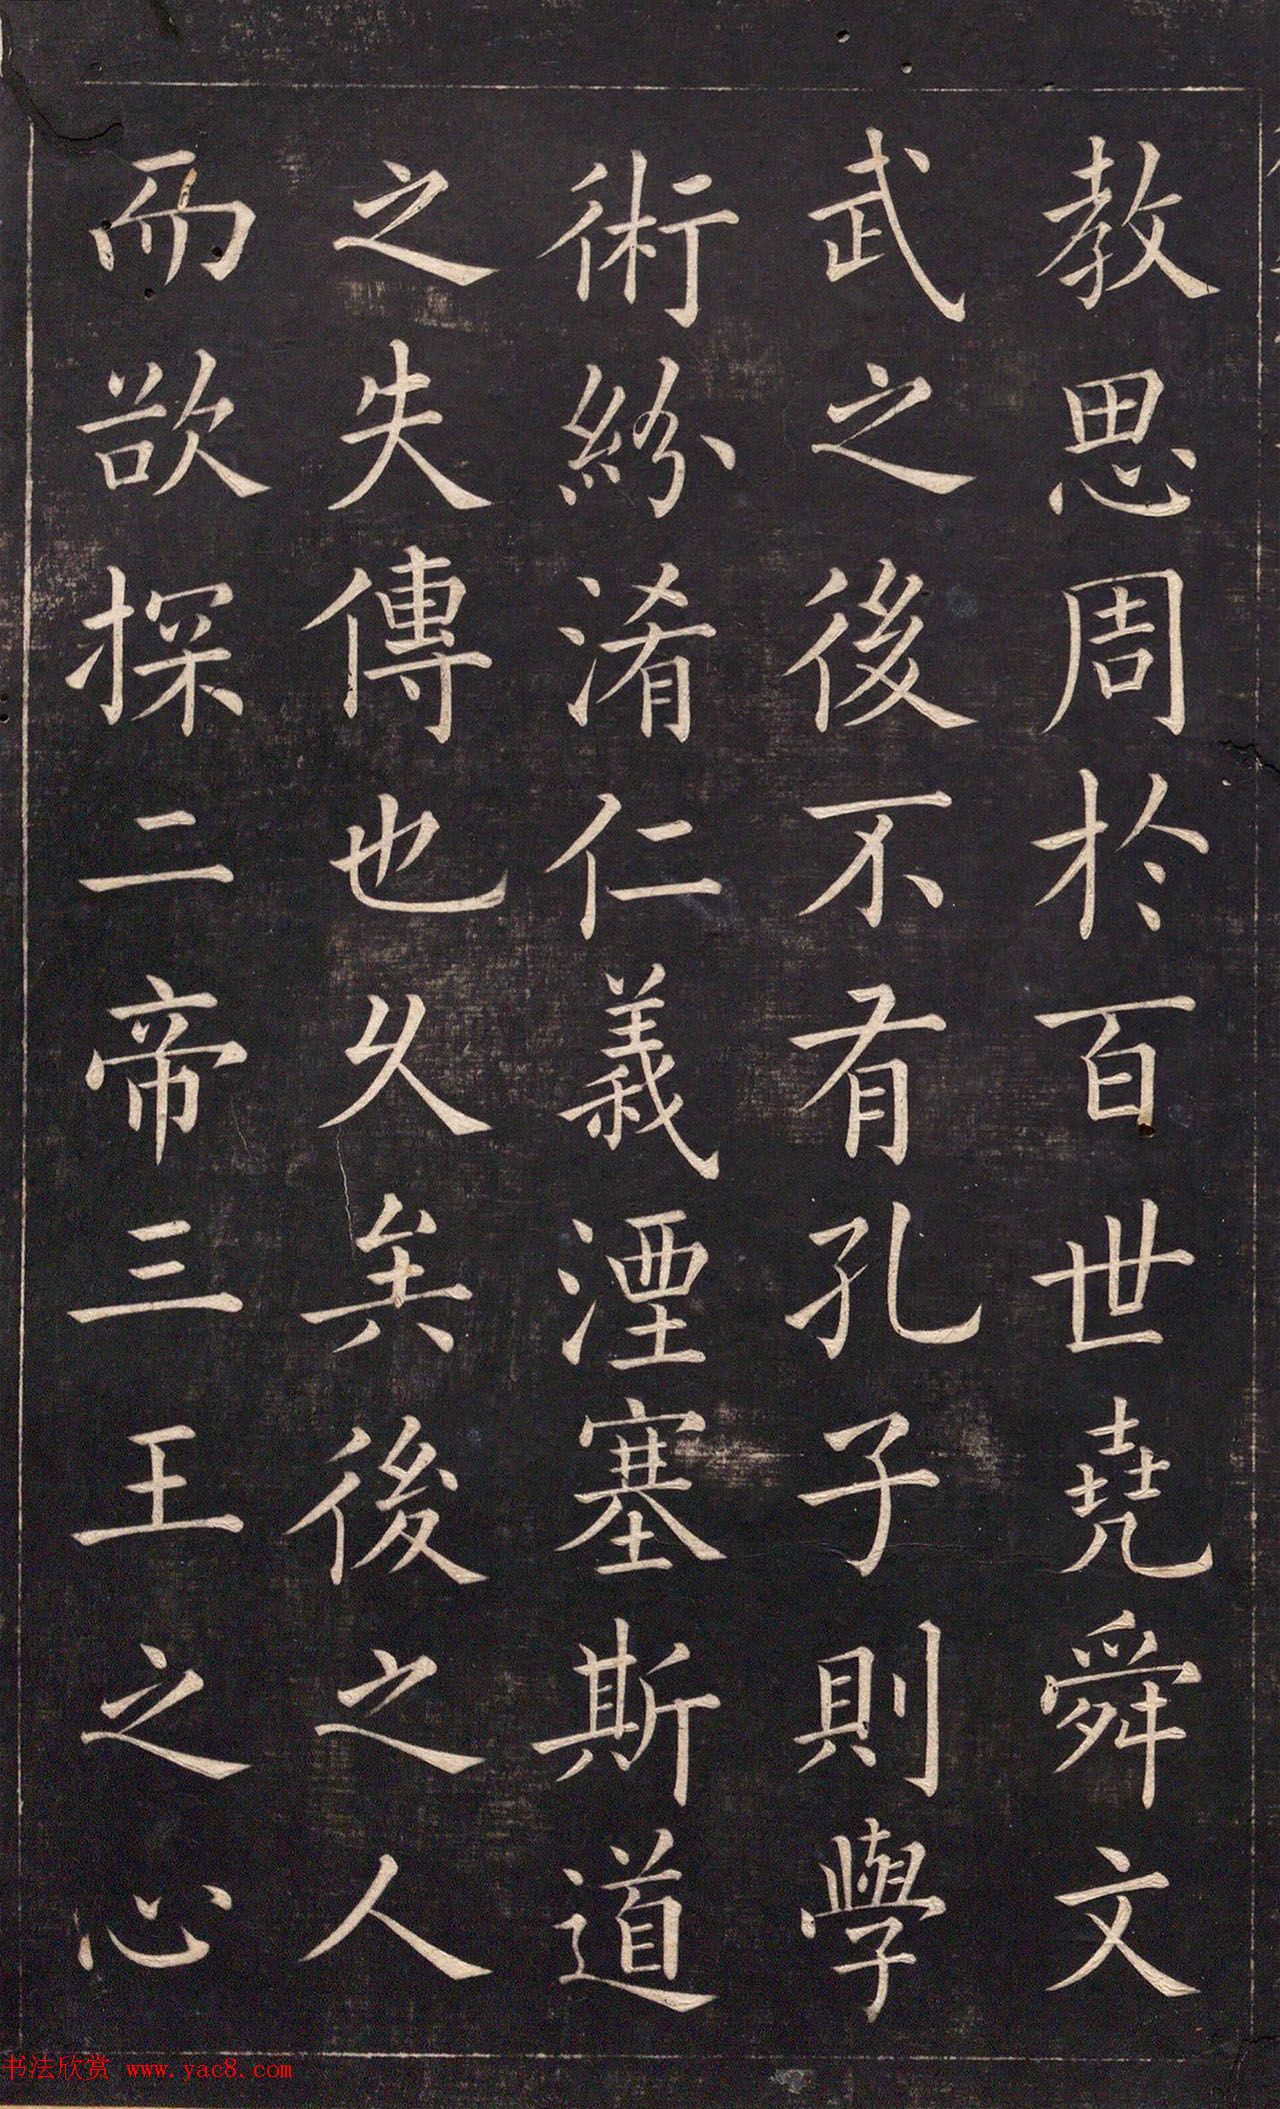 教思周於百世堯舜文
武之後不有孔子則學
術紛淆仁義湮塞斯道
之失傳也久矣後之人
而欲探二帝三王之心
书法欣赏 www.yac8.com